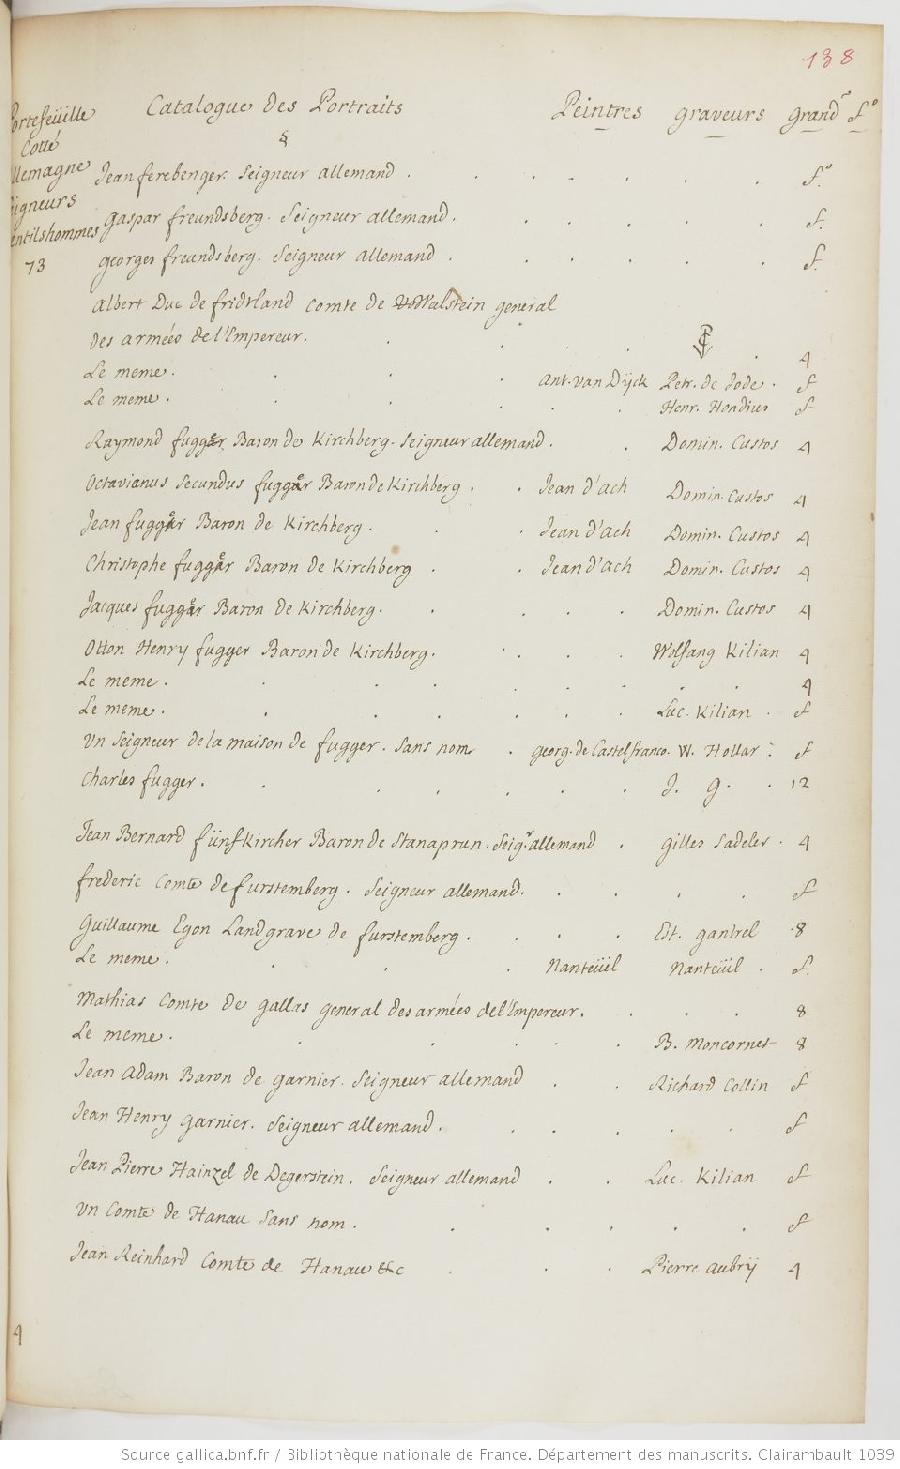 138
Portefeüille Catalogue des Portraits Peintres graveurs grandr fo
Cotté §
allemagne Jean ferebenger. Seigneur allemand . fo.
Seigneurs gaspar freundsberg. Seigneur allemand. f.
gentilshommes georges freundsberg. Seigneur allemand . f.
73
albert Duc de fridtland Comte de Walstein general
des armées de l'Empereur. 4
Le meme. ant. van Dÿck Petr. de Jode. f
Le meme. Henr. Hondius f
Raymond fugger Baron de Kirchberg. Seigneur allemand. Domin. Custos 4
Octavianus Secundus fugger Baron de Kirchberg. Jean d'ach Domin. Custos 4
Jean fugger Baron de Kirchberg. Jean d'ach Domin. Custos 4
Christophe fugger Baron de Kirchberg . Jean d'ach Domin. Custos 4
Jacques fugger Baron de Kirchberg. Domin. Custos 4
Otton Henry fugger Baron de Kirchberg. Wolfang Kilian 4
Le meme. 4
Le meme. Luc. Kilian . f
Un Seigneur de la maison de fugger. Sans nom . georg. de Castelfranco. W. Hollar. f
Charles fugger. J. g. 12
Jean Bernard fünfkircher Baron de Stanaprun. Seigr. allemand . gilles Sadeler . 4
frederic Comte de furstemberg. Seigneur allemand. f
Guillaume Egon Landgrave de furstemberg. Est. gantrel 8
Le meme. Nanteüil Nanteüil . f.
Mathias Comte de gallas general des armées de l'Empereur. 8
Le meme. B. moncornet 8
Jean adam Baron de garnier. Seigneur allemand Richard Collin f
Jean Henry garnier. Seigneur allemand. f
Jean Pierre Hainzel de Degerstein. Seigneur allemand Luc. Kilian f
Un Comte de Hanau Sans nom. f
Jean Reinhard Comte de Hanau &c Pierre aubrÿ 4
4
Source gallica.bnf.fr / Bibliothèque nationale de France. Département des manuscrits. Clairambault 1039